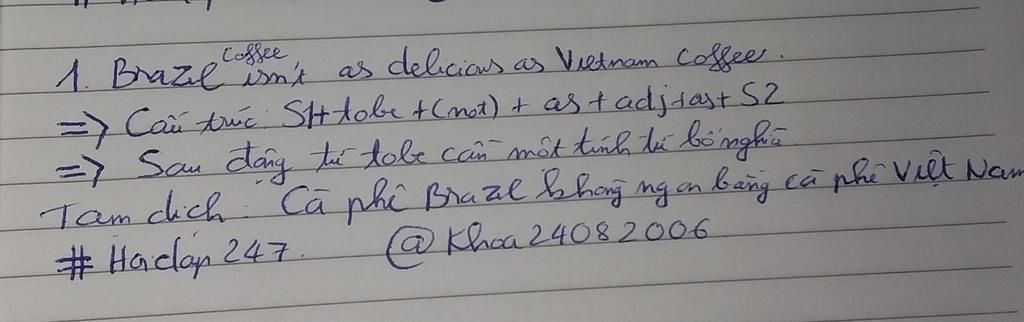 1. Brazil coffee isn't as delicious as Vietnam coffee.
=> Cấu trúc: S1 + tobe + (not) + as + adj + as + S2
=> Sau động từ tobe cần một tính từ bổ nghĩa.
Tạm dịch: Cà phê Brazil không ngon bằng cà phê Việt Nam
# Hoidap247. @Khoa24082006